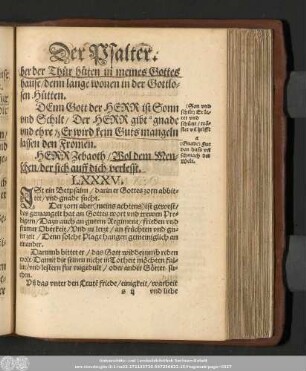 Der Psalter.
ber der Thür hüten in meines Gottes
hause / denn lange wonen in der Gottlo-
sen Hütten.
DEnn Gott der HERR ist Sonn
vnd Schilt / Der HERR gibt gnade
vnd ehre / Er wird kein Guts mangeln
lassen den Fromen.
HERR Zebaoth / Wol dem Men-
schen / der sich auff dich verlesst.
LXXXV.
ISt ein Betpsalm / darin er Gottes zorn abbit-
tet / vnd gnade sucht.
Der zorn aber (meins achtens) ist gewest /
das gemangelt hat an Gottes wort vnd trewen Pre-
digern / Dazu auch an gutem Regiment / frieden vnd
feiner Oberkeit / Vnd zu letzt / an früchten vnd gu-
ter zeit / Denn solche Plage hangen gemeiniglich an
einander.
Darumb bittet er / das Gott wid
wolt / Damit die seinen nicht in Torheit möchten fal-
len / vnd lestern für vngedult / oder ander Götter su-
chen.
vnter den Leuten friede / einigkeit / warheit
vnd liebe
(Son vnd